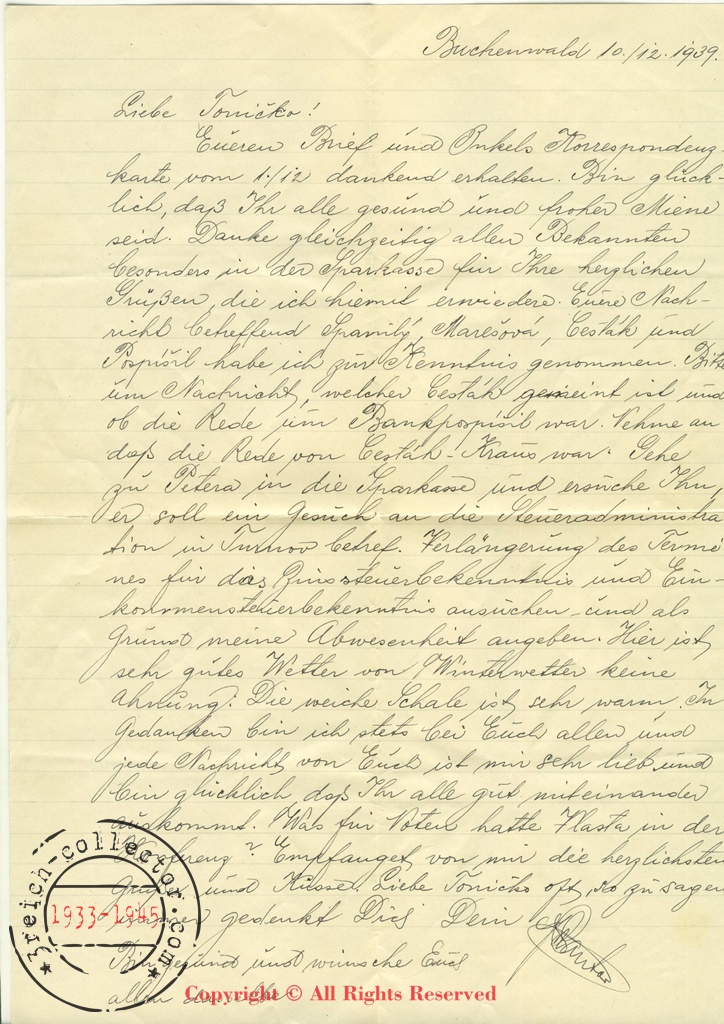 Buchenwald 10./12. 1939.
Liebe Toničko!
Eueren Brief und Onkels Korrespondenz-
karte vom 1./12 dankend erhalten. Bin glück-
lich, daß Ihr alle gesund und froher Miene
seid. Danke gleichzeitig allen Bekannten
besonders in der Sparkasse für Ihre herzlichen
Grüßen, die ich hiemit erwiedere. Euere Nach-
richt betreffend Marešova, Cesták und
Pospíšil habe ich zur Kenntnis genommen. Bitte
um Nachricht, welcher Cesták gemeint ist und
ob die Rede um Bankpospíšil war. Nehme an
daß die Rede von Cesták-Kraus war. Gehe
zu Petera in die Sparkasse und ersuche Ihn,
er soll ein Gesuch an die Steueradministra
tion in Turnov betref. Verlängerung des Termi
nes für das Zinssteuerbekenntnis und Ein-
kommensteuerbekenntnis ansuchen und als
Grund meine Abwesenheit angeben. Hier ist
sehr gutes Wetter von Winterwetter keine
Ahnung. Die weiche Schale ist sehr warm. In
Gedanken bin ich stets bei Euch allen und
jede Nachricht von Euch ist mir sehr lieb und
bin glücklich, daß Ihr alle gut miteinander
auskommt. Was für Noten hatte Vlasta in der
Konferenz? Empfanget von mir die herzlichsten
Grüße und Küsse. Liebe Toničko oft, so zu sagen
immer gedenkt Dich Dein
Bin gesund und wünsche Euch
allen dasselbe
3reich-collector.com
1933-1945
Copyright © All Rights Reserved